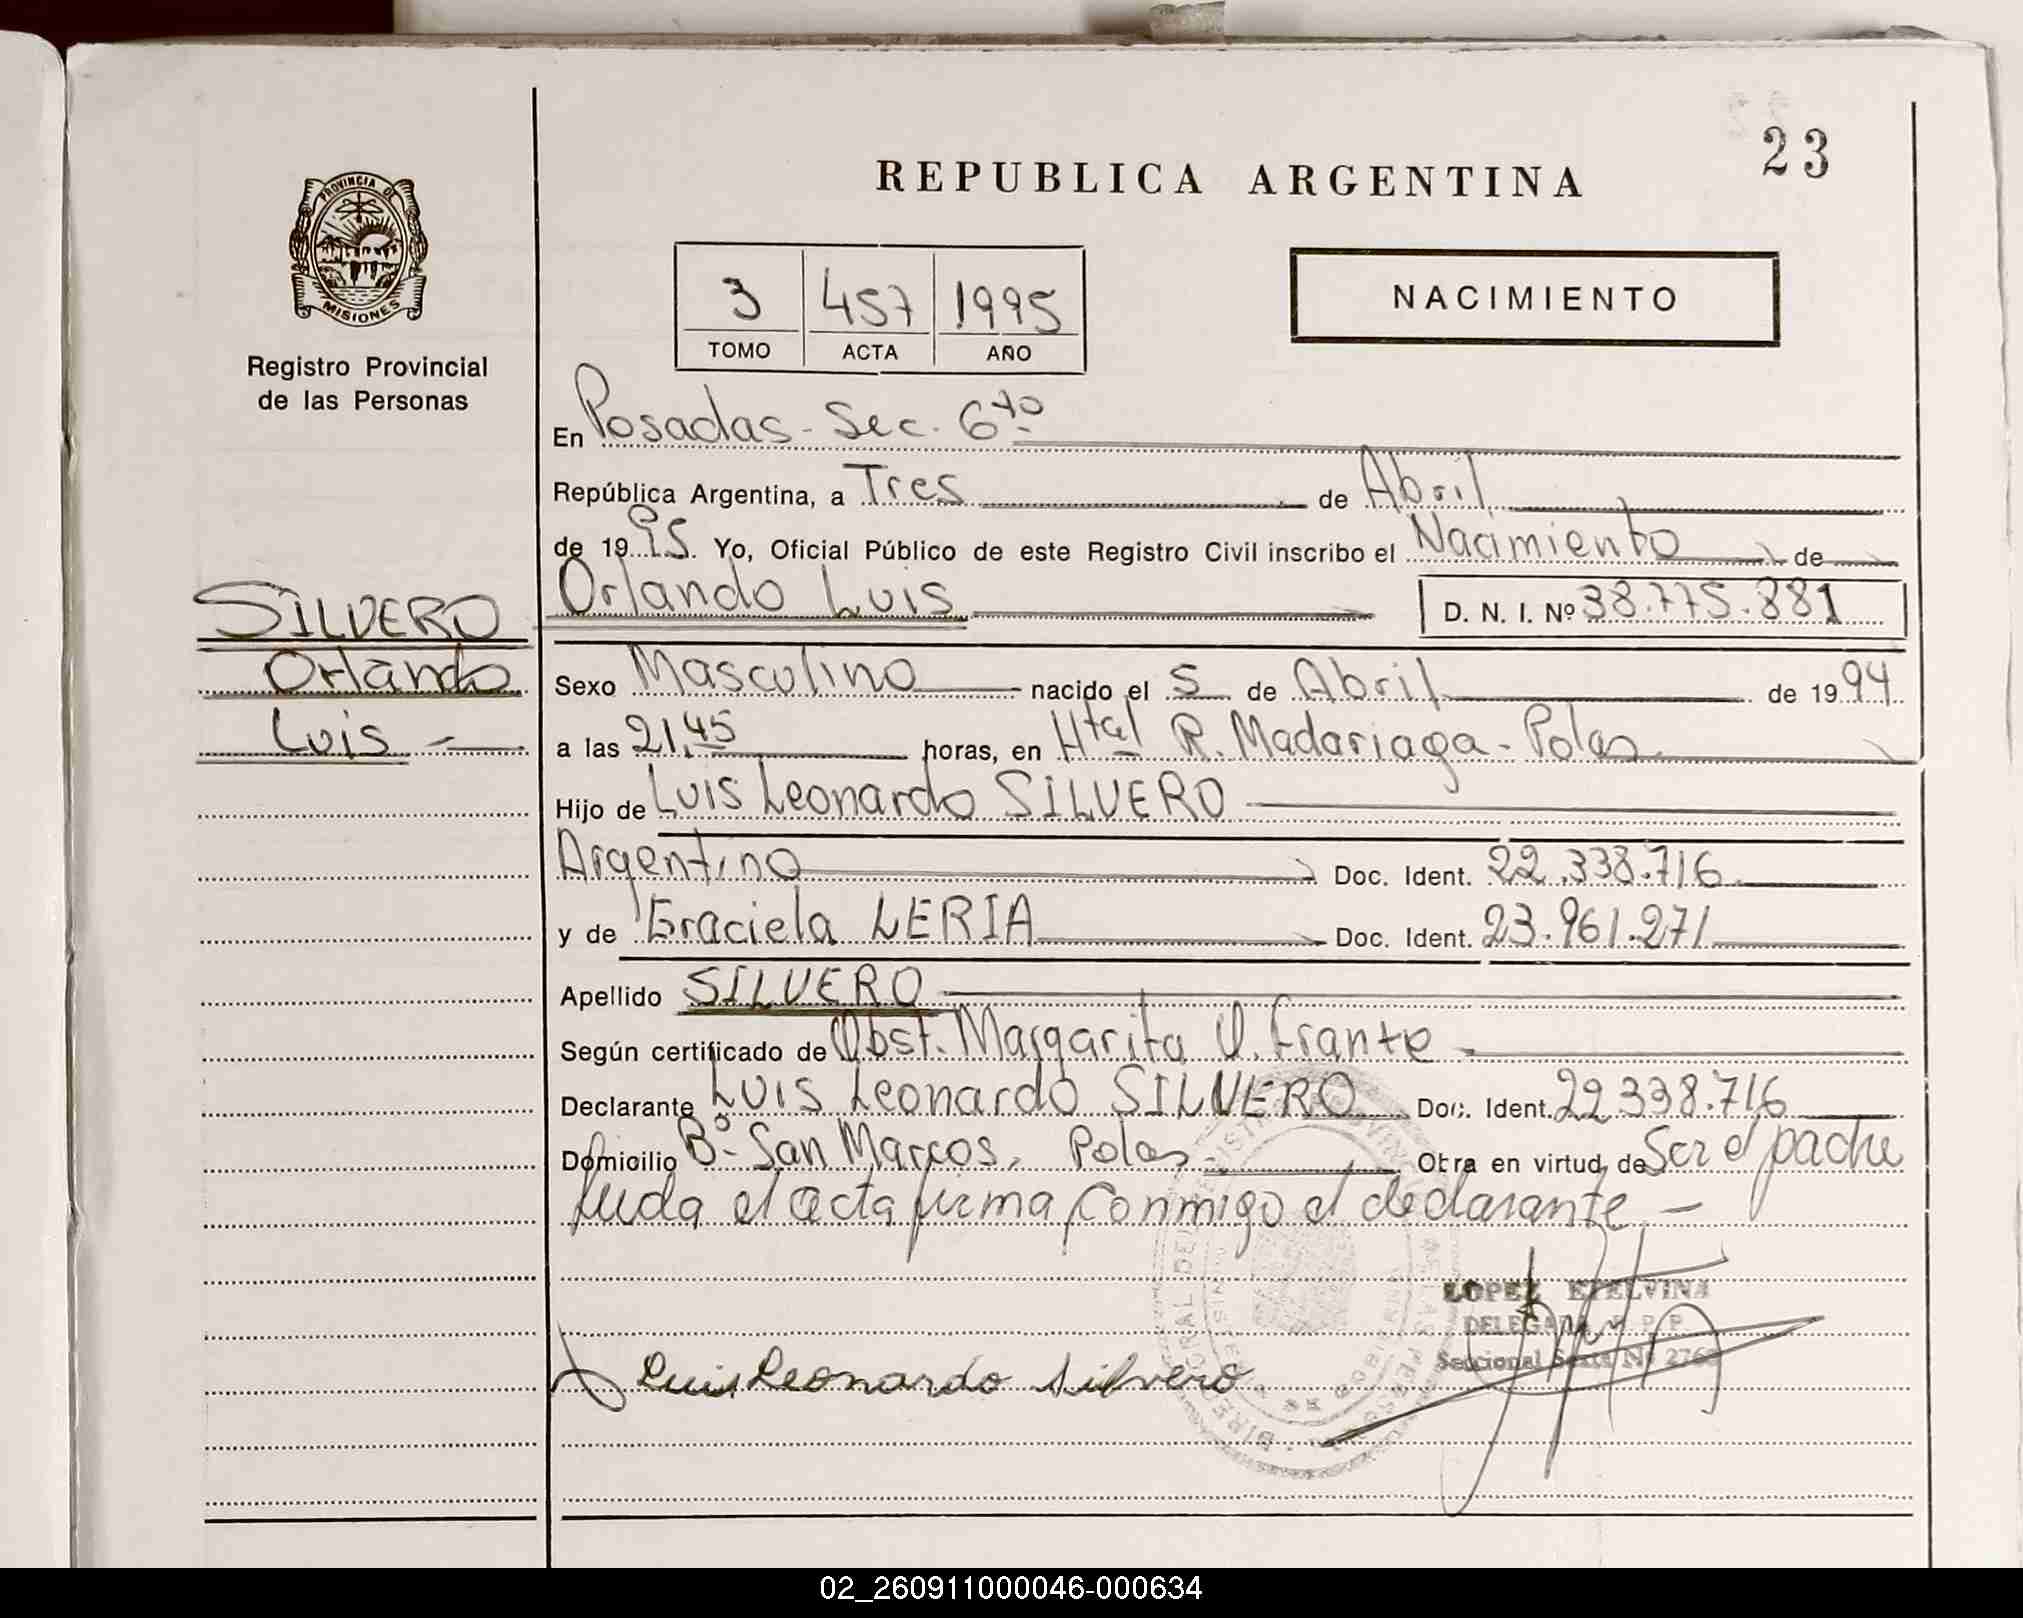 23
REPUBLICA ARGENTINA
PROVINCIA DE
MISIONES
Registro Provincial
de las Personas
3 457 1995
TOMO ACTA AÑO
NACIMIENTO
En Posadas - Sec. 6to
República Argentina, a Tres de Abril
de 1995. Yo, Oficial Público de este Registro Civil inscribo el Nacimiento de
SILVERO
Orlando
Luis -
Orlando Luis D. N. I. Nº 38.775.881
Sexo Masculino nacido el 5 de Abril de 1994
a las 21,45 horas, en Htal R. Madariaga - Pdas
Hijo de Luis Leonardo SILVERO
Argentino Doc. Ident. 22.338.716
y de Graciela LERIA Doc. Ident. 23.961.271
Apellido SILVERO
Según certificado de Obst. Margarita
Declarante Luis Leonardo SILVERO Doc. Ident. 22 338.716
Domicilio Bº San Marcos, Pdas Obra en virtud de Ser el padre
leída el acta firma conmigo el declarante. -
LOPEZ ETELVINA
DELEGADA R. P. P.
Seccional Sexta Nº
Luis Leonardo Silvero
02_260911000046-000634